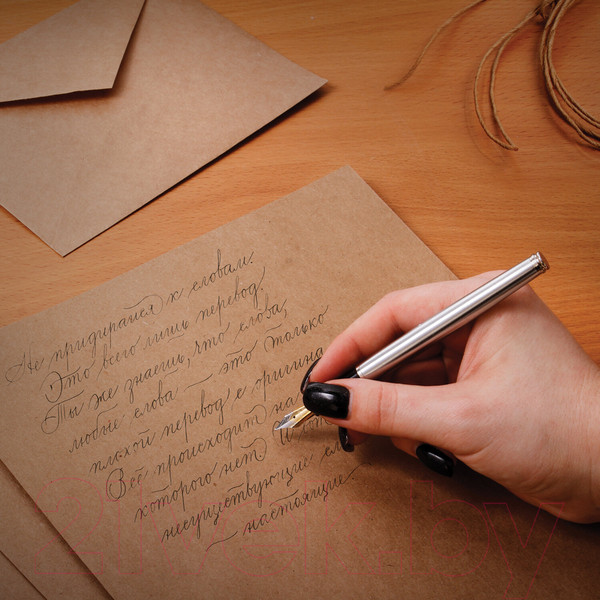 Не придирайся к словам.
Это всего лишь перевод.
Ты же знаешь, что слова,
любые слова — это только
плохой перевод с оригина
Всё происходит на
которого нет
несуществующие сл
— настоящие.
21vek.by